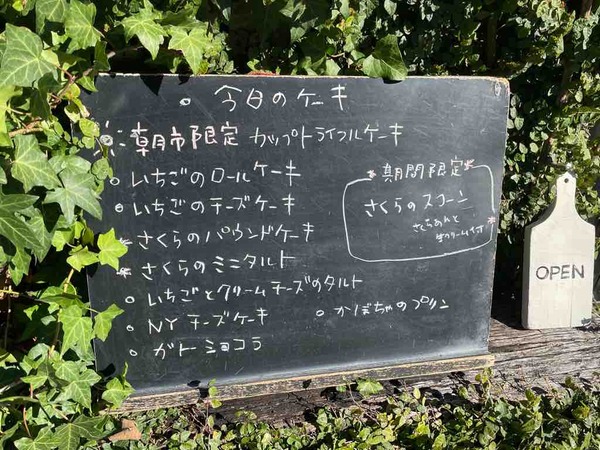 今日のケーキ
朝市限定 カップトライフルケーキ
いちごのロールケーキ
いちごのチーズケーキ
さくらのパウンドケーキ
さくらのミニタルト
いちごとクリームチーズのタルト
NYチーズケーキ
かぼちゃのプリン
ガトーショコラ
期間限定
さくらのスコーン
さくらあんと
生クリーム付
OPEN